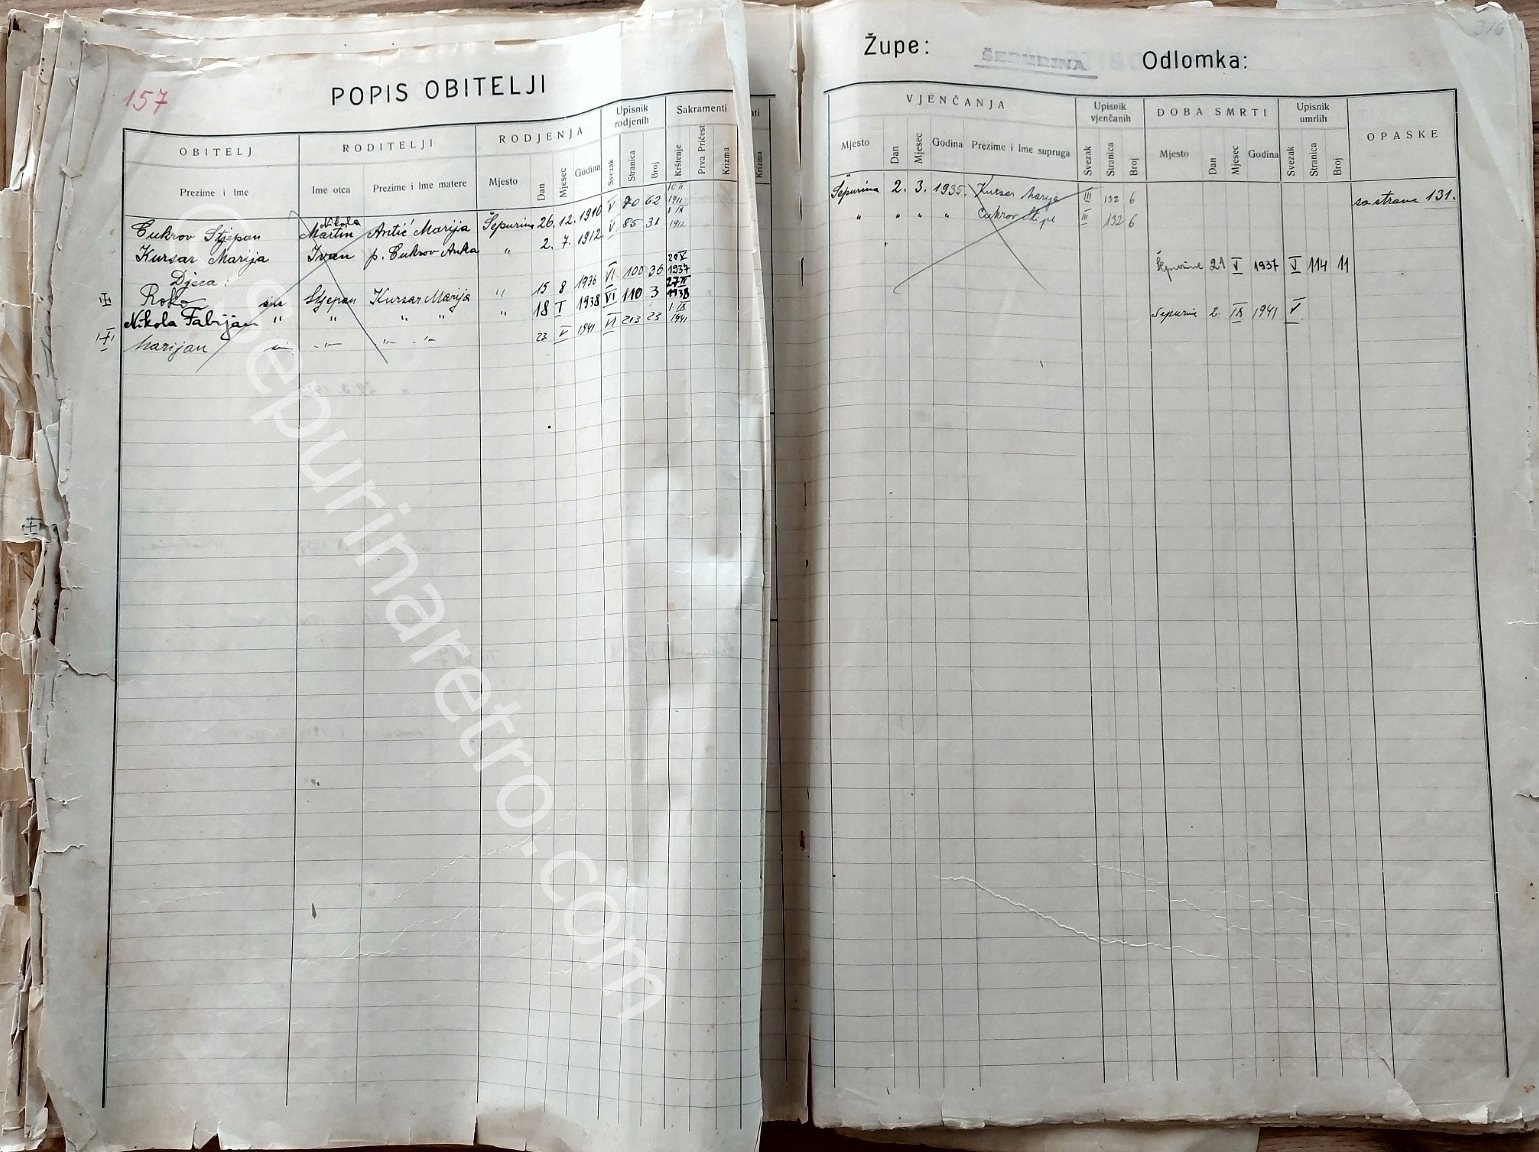 157
POPIS OBITELJI
OBITELJ
RODITELJI
RODJENJA
Upisnik rodjenih
Sakramenti
Prezime i Ime
Ime otca
Prezime i Ime matere
Mjesto
Dan
Mjesec
Godina
Svezak
Stranica
Broj
Krštenje
Prva Pričest
Krizma
Krizma
Nikola
Cukrov Stjepan Martin Antić Marija Šepurina 26. 12. 1910 V 70 62
Kursar Marija Ivan p. Cukrov Anka " 2. 7. 1912. V 85 31
Djeca:
Roko sin Stjepan Kursar Marija " 15 8 1936 VI 100 36 1937
Nikola Fabijan " " " " " 18 I 1938 VI 110 3 1938
Marijan 23 V 1941 VI 213 23 1941
316
Župe: ŠEPURINA Odlomka:
VJENČANJA
Upisnik vjenčanih
DOBA SMRTI
Upisnik umrlih
OPASKE
Mjesto
Dan
Mjesec
Godina
Prezime i Ime supruga
Svezak
Stranica
Broj
Mjesto
Dan
Mjesec
Godina
Svezak
Stranica
Broj
Šepurina 2. 3. 1935. Kursar Marija III 132 6 sa strane 131.
" " " " Cukrov Stipe III 132 6
Šepurina 21 V 1937 V 114 11
Šepurina 2 IX 1941 V
©sepurinaretro.com